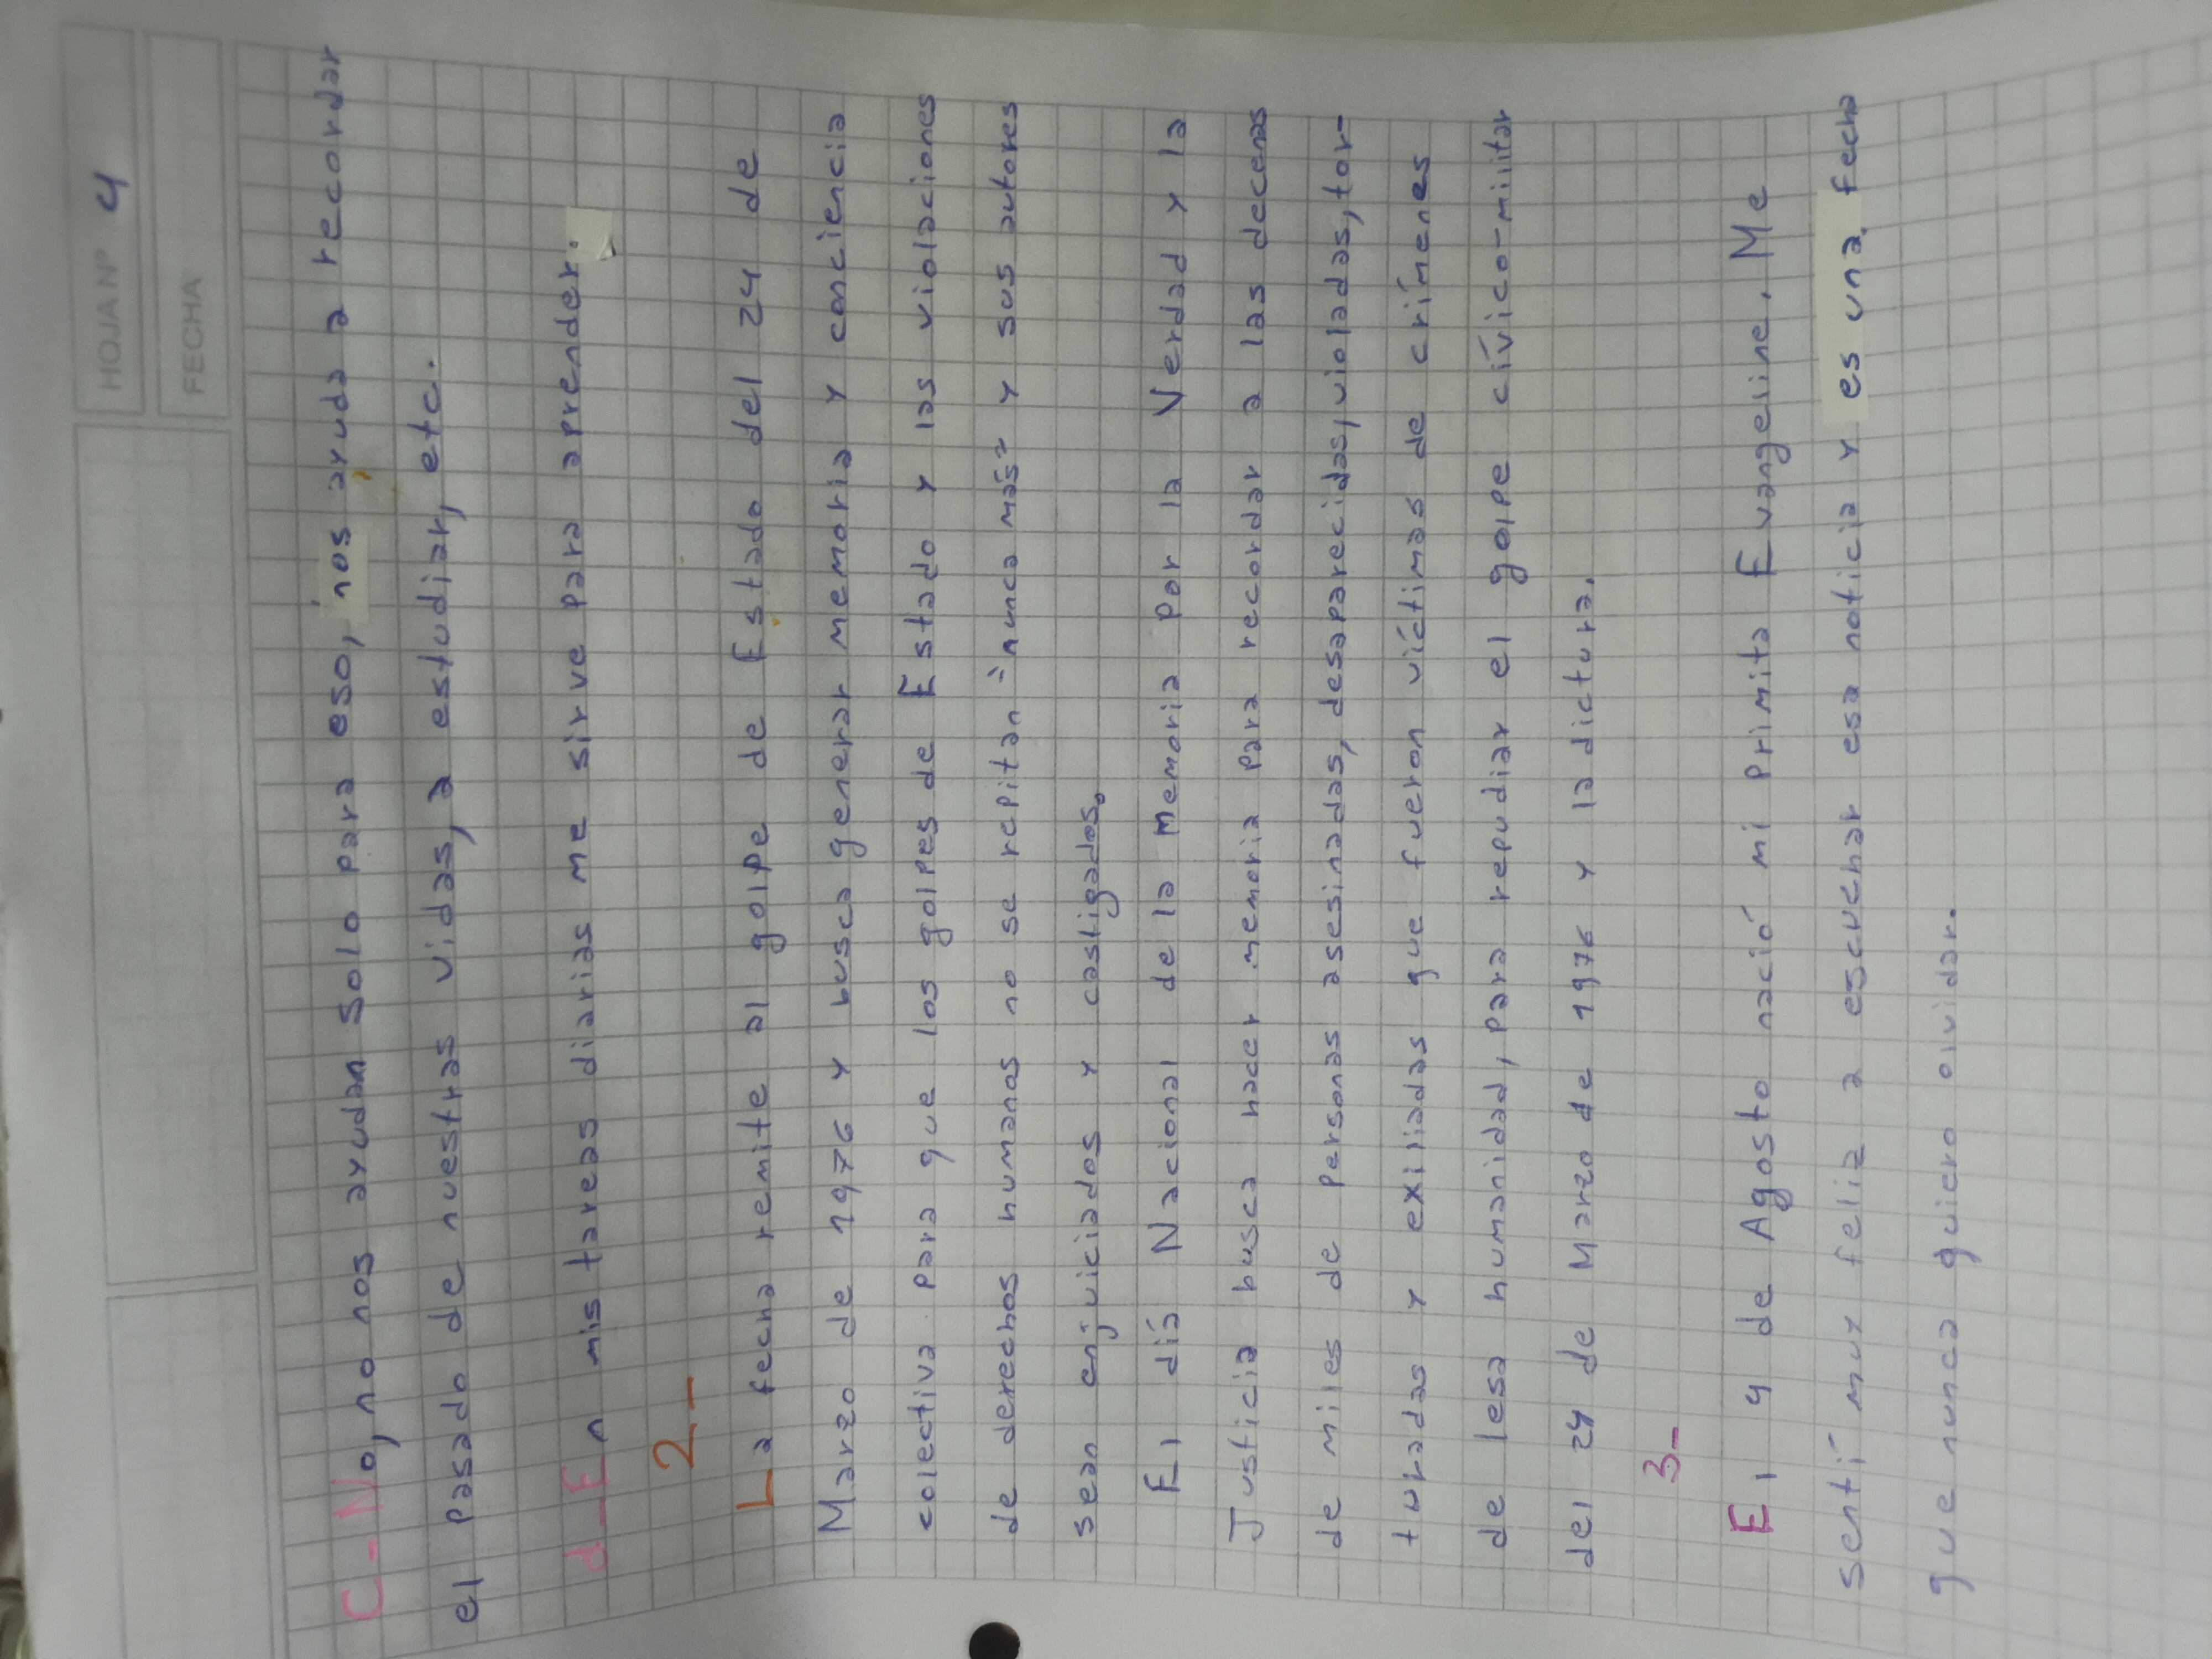 HOJA Nº 4
FECHA
C-No, no nos ayudan solo para eso, nos ayuda a recordar
el pasado de nuestras vidas, a estudiar, etc.
d-En mis tareas diarias me sirve para aprender.
2-
La fecha remite al golpe de Estado del 24 de
Marzo de 1976 y busca generar memoria y conciencia
colectiva para que los golpes de Estado y las violaciones
de derechos humanos no se repitan "nunca más" y sus autores
sean enjuiciados y castigados.
El día Nacional de la Memoria por la Verdad y la
Justicia busca hacer memoria para recordar a las decenas
de miles de personas asesinadas, desaparecidas, violadas, tor-
turadas y exiliadas que fueron víctimas de crímenes
de lesa humanidad, para repudiar el golpe cívico-militar
del 24 de Marzo de 1976 y la dictura.
3-
El 4 de Agosto nació mi primita Evangeline. Me
sentí muy feliz a escuchar esa noticia y es una fecha
que nunca quiero olvidar.